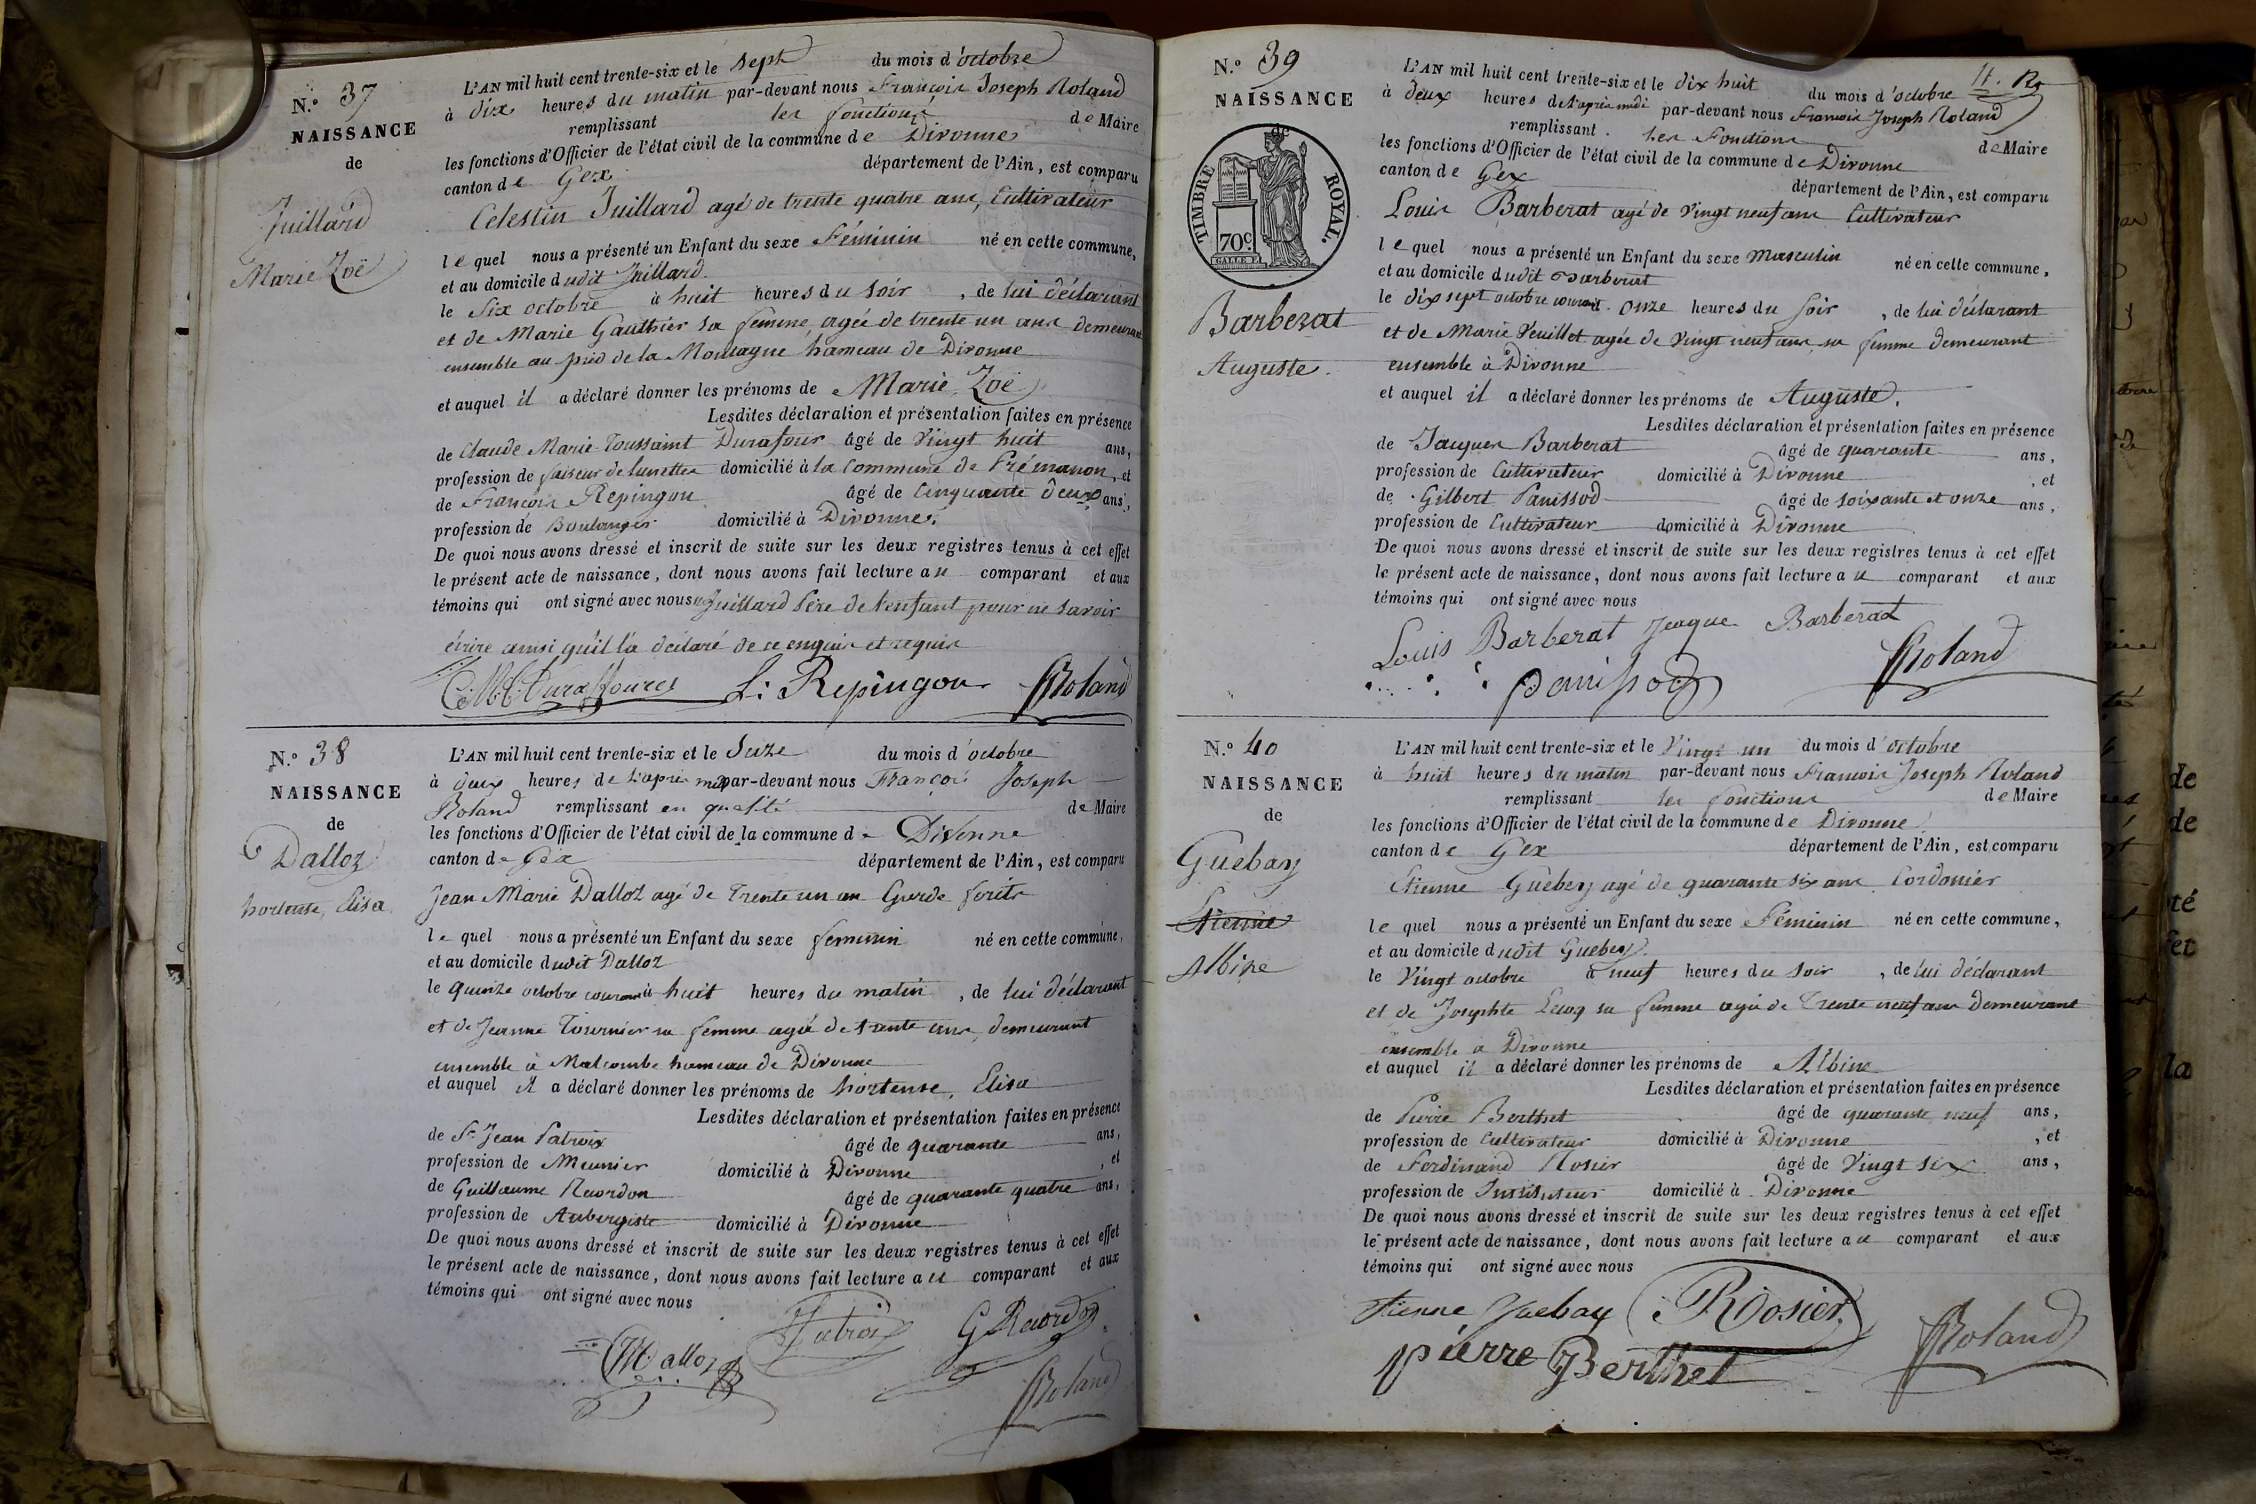 N.o 37
NAISSANCE
de
Juillard
Marie Zoë
L'AN mil huit cent trente-six et le sept du mois d'octobre
à dix heures du matin par-devant nous François Joseph Roland
remplissant les fonctions de Maire
les fonctions d'Officier de l'état civil de la commune de Divonne
canton de Gex département de l'Ain, est comparu
Celestin Juillard agé de trente quatre ans, Cultivateur
lequel nous a présenté un Enfant du sexe Féminin né en cette commune,
et au domicile dudit Juillard.
le Six octobre à huit heures du soir, de lui déclarant
et de Marie Gauthier sa femme, agée de trente un ans demeurant
ensemble au pied de la Montagne hameau de Divonne
et auquel il a déclaré donner les prénoms de Marie Zoë
Lesdites déclaration et présentation faites en présence
de Claude Marie Toussaint Durafour âgé de Vingt huit ans,
profession de faiseur de lunettes domicilié à la Commune de Prémanon, et
de François Repingon âgé de Cinquante deux ans,
profession de Boulanger domicilié à Divonne.
De quoi nous avons dressé et inscrit de suite sur les deux registres tenus à cet effet
le présent acte de naissance, dont nous avons fait lecture au comparant et aux
témoins qui ont signé avec nous Juillard Père de l'enfant pour ne savoir
écrire ainsi qu'il l'a déclaré de ce enquis et requis
C.M.T. Duraffourg L: Repingon Roland
N.o 38
NAISSANCE
de
Dalloz
hortense, Elisa
L'AN mil huit cent trente-six et le Suze du mois d'octobre
à deux heures de l'après midi par-devant nous François Joseph
Roland remplissant en qualité de Maire
les fonctions d'Officier de l'état civil de la commune de Divonne
canton de Gex département de l'Ain, est comparu
Jean Marie Dalloz agé de Trente un an Garde forêts
lequel nous a présenté un Enfant du sexe feminin né en cette commune,
et au domicile dudit Dalloz
le quinze octobre courant à huit heures du matin, de lui déclarant
et de Jeanne Tournier sa femme agée de trente ans, demeurant
ensemble à Malcombe hameau de Divonne
et auquel il a déclaré donner les prénoms de hortense, Elisa
Lesdites déclaration et présentation faites en présence
de Sr Jean Patroix âgé de quarante ans,
profession de Meunier domicilié à Divonne, et
de Guillaume Reordon âgé de quarante quatre ans,
profession de Aubergiste domicilié à Divonne
De quoi nous avons dressé et inscrit de suite sur les deux registres tenus à cet effet
le présent acte de naissance, dont nous avons fait lecture au comparant et aux
témoins qui ont signé avec nous
Dalloz Patroix G Reordon
Roland
N.o 39
NAISSANCE
de
TIMBRE ROYAL.
70c.
Barberat
Auguste.
L'AN mil huit cent trente-six et le dix huit du mois d'octobre
à deux heures de l'après midi par-devant nous Francois Joseph Roland
remplissant les Fonctions de Maire
les fonctions d'Officier de l'état civil de la commune de Divonne
canton de Gex département de l'Ain, est comparu
Louis Barberat agé de Vingt neuf ans Cultivateur
lequel nous a présenté un Enfant du sexe masculin né en cette commune,
et au domicile dudit Barberat
le dix sept octobre courant à onze heures du soir, de lui déclarant
et de Marie Veuillet agée de Vingt neuf ans, sa femme demeurant
ensemble à Divonne
et auquel il a déclaré donner les prénoms de Auguste.
Lesdites déclaration et présentation faites en présence
de Jacques Barberat âgé de quarante ans,
profession de Cultivateur domicilié à Divonne, et
de Gilbert Panissod âgé de soixante et onze ans,
profession de Cultivateur domicilié à Divonne
De quoi nous avons dressé et inscrit de suite sur les deux registres tenus à cet effet
le présent acte de naissance, dont nous avons fait lecture au comparant et aux
témoins qui ont signé avec nous
Louis Barberat Jeaque Barberat
panissod Roland
N.o 40
NAISSANCE
de
Guebay
Etienne
Albine
L'AN mil huit cent trente-six et le Vingt un du mois d'octobre
à huit heures du matin par-devant nous Francois Joseph Roland
remplissant les fonctions de Maire
les fonctions d'Officier de l'état civil de la commune de Divonne
canton de Gex département de l'Ain, est comparu
Etienne Guebey agé de quarante six ans Cordonier
lequel nous a présenté un Enfant du sexe Féminin né en cette commune,
et au domicile dudit Guebey.
le Vingt octobre à neuf heures du soir, de lui déclarant
et de Josephte Lecoq sa femme agée de Trente neuf ans demeurant
ensemble à Divonne
et auquel il a déclaré donner les prénoms de Albine
Lesdites déclaration et présentation faites en présence
de Pierre Berthet âgé de quarante neuf ans,
profession de Cultivateur domicilié à Divonne, et
de Ferdinand Rosier âgé de Vingt six ans,
profession de Instituteur domicilié à Divonne
De quoi nous avons dressé et inscrit de suite sur les deux registres tenus à cet effet
le présent acte de naissance, dont nous avons fait lecture au comparant et aux
témoins qui ont signé avec nous
Etienne Guebay Rosier
pierre Berthet Roland